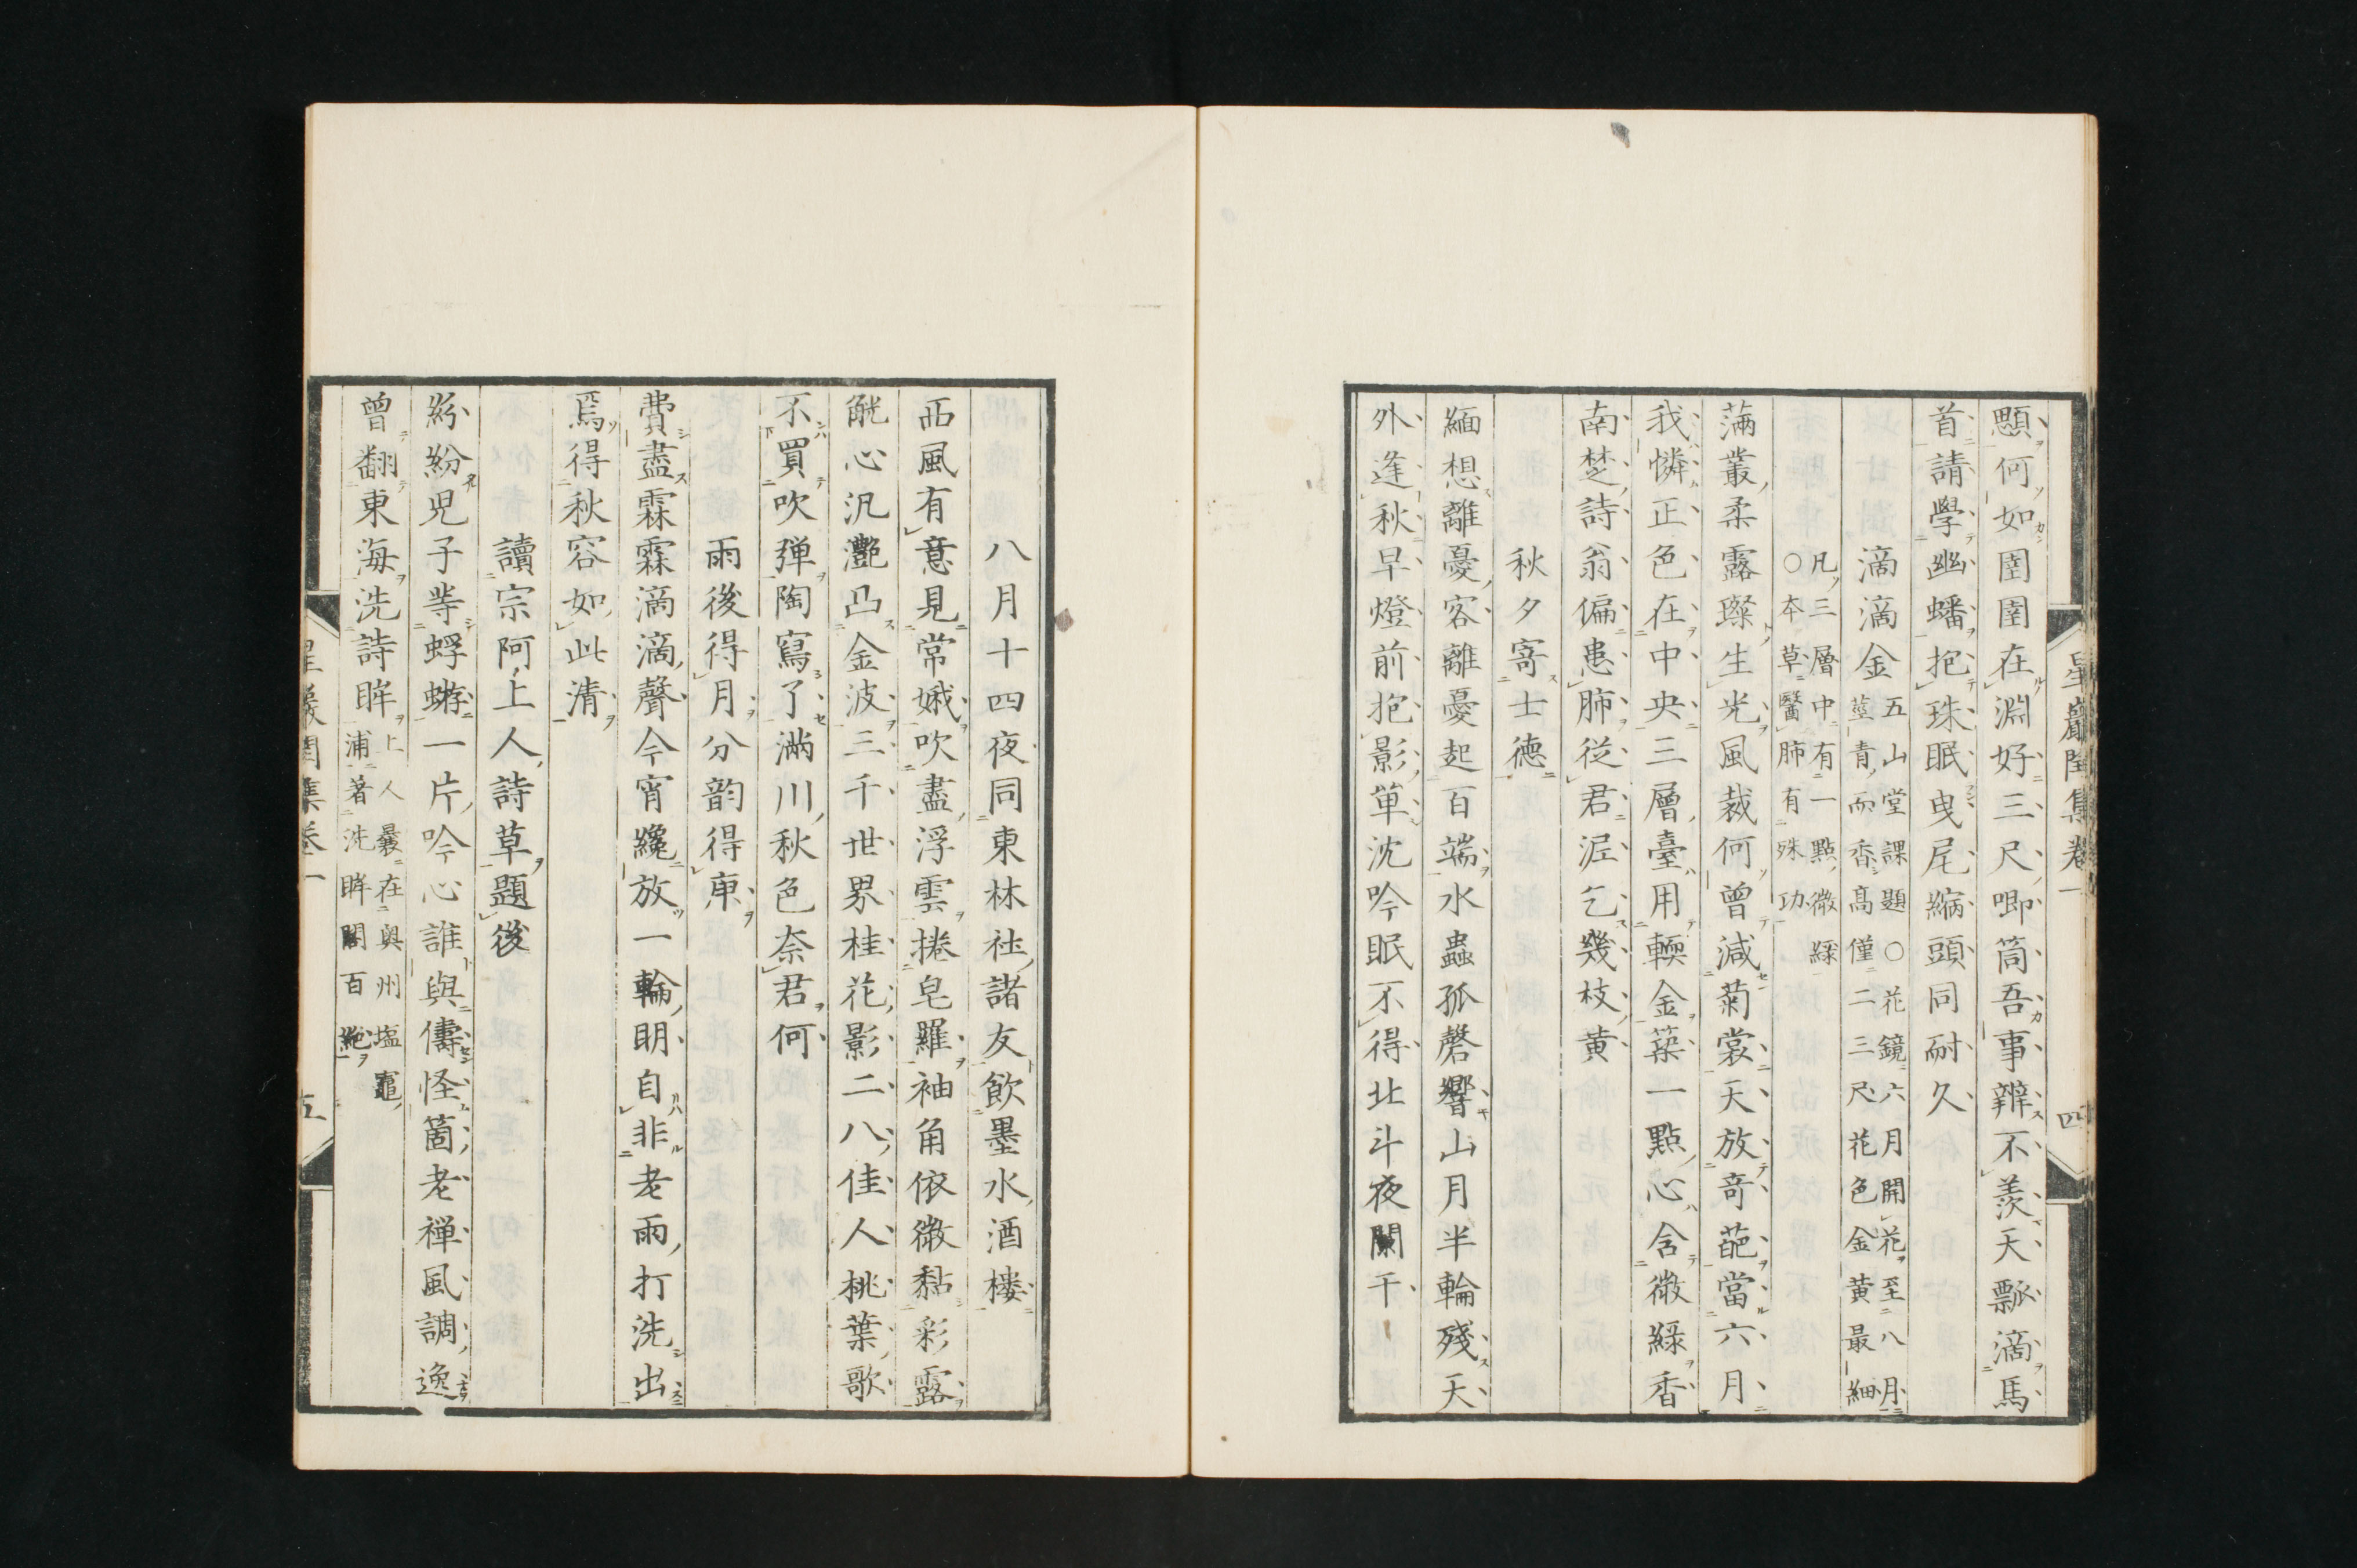 顋何如圉圉在淵好三尺唧筒吾事辨不羨天瓢滴馬
首請學幽蟠抱珠眠曳尾縮頭同耐久
滴滴金五山堂課題○花鏡六月開花至八月
莖青而香高僅二三尺花色金黄最細
凡三層中有一點微綠
○本草醫肺有殊功
滿叢柔露璨生光風裁何曾減菊裳天放奇葩當六月
我憐正色在中央三層臺用輭金築一點心含微綠香
南楚詩翁偏患肺從君泥乞幾枝黄
秋夕寄士德
緬想離憂客離憂起百端水蟲孤磬響山月半輪殘天
外逢秋早燈前抱影單沈吟眠不得北斗夜闌干
星巖集卷一
四
八月十四夜同東林社諸友飲墨水酒樓
西風有意見常娥吹盡浮雲捲皂羅袖角依微黏彩露
觥心汎灧凸金波三千世界桂花影二八佳人桃葉歌
不買吹弾陶寫了滿川秋色奈君何
雨後得月分韵得庚
費盡霖霖滴滴聲今宵纔放一輪明自非老雨打洗出
焉得秋容如此清
讀宗阿上人詩草題後
紛紛児子等蜉蝣一片吟心誰與儔怪箇老禅風調逸
曾翻東海洗詩眸上人曩在奥州塩竈
浦著洗眸閣百絶
集卷一
五